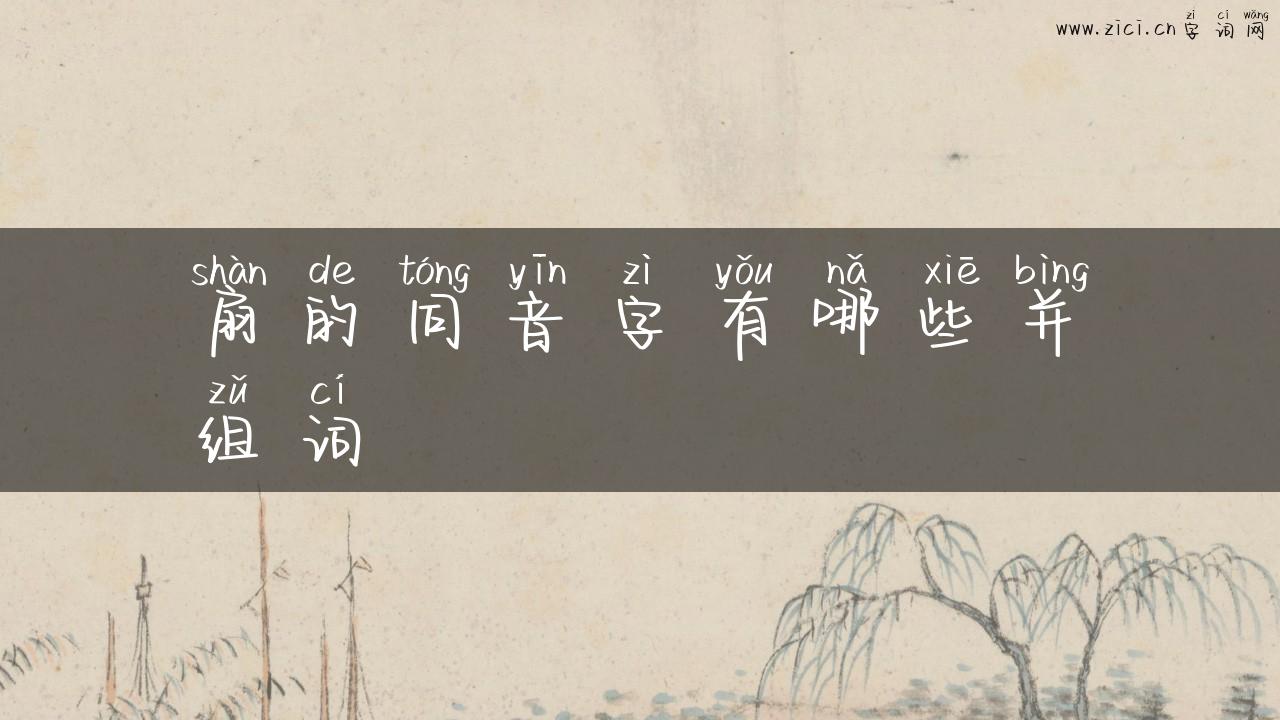 zì cí wǎng
www.zici.cn 字词网
shàn de tóng yīn zì yǒu nǎ xiē bìng
扇的同音字有哪些并
zǔ cí
组词